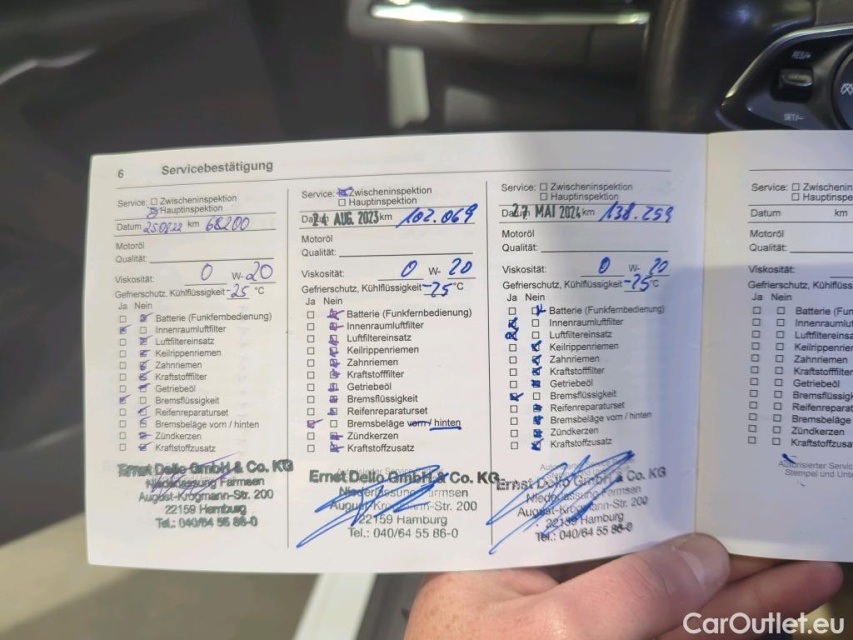 6 Servicebestätigung
Service: Zwischeninspektion
Hauptinspektion
Datum km 68200
Motoröl
Qualität:
Viskosität: 0 W- 20
Gefrierschutz, Kühlflüssigkeit -25 °C
Ja Nein
Batterie (Funkfernbedienung)
Innenraumluftfilter
Luftfiltereinsatz
Keilrippenriemen
Zahnriemen
Kraftstofffilter
Getriebeöl
Bremsflüssigkeit
Reifenreparaturset
Bremsbeläge vorn / hinten
Zündkerzen
Kraftstoffzusatz
Ernst Dello GmbH & Co. KG
Niederlassung Farmsen
August-Krogmann-Str. 200
22159 Hamburg
Tel.: 040/64 55 86-0
Service: Zwischeninspektion
Hauptinspektion
Datum 24 AUG. 2023 km 102.069
Motoröl
Qualität:
Viskosität: 0 W- 20
Gefrierschutz, Kühlflüssigkeit -25 °C
Ja Nein
Batterie (Funkfernbedienung)
Innenraumluftfilter
Luftfiltereinsatz
Keilrippenriemen
Zahnriemen
Kraftstofffilter
Getriebeöl
Bremsflüssigkeit
Reifenreparaturset
Bremsbeläge vorn / hinten
Zündkerzen
Kraftstoffzusatz
Ernst Dello GmbH & Co. KG
Niederlassung Farmsen
August-Krogmann-Str. 200
22159 Hamburg
Tel.: 040/64 55 86-0
Service: Zwischeninspektion
Hauptinspektion
Datum 27 MAI 2024 km 138.259
Motoröl
Qualität:
Viskosität: 0 W- 20
Gefrierschutz, Kühlflüssigkeit -25 °C
Ja Nein
Batterie (Funkfernbedienung)
Innenraumluftfilter
Luftfiltereinsatz
Keilrippenriemen
Zahnriemen
Kraftstofffilter
Getriebeöl
Bremsflüssigkeit
Reifenreparaturset
Bremsbeläge vorn / hinten
Zündkerzen
Kraftstoffzusatz
Ernst Dello GmbH & Co. KG
Niederlassung Farmsen
August-Krogmann-Str. 200
22159 Hamburg
Tel.: 040/64 55 86-0
Service: Zwischeninspektion
Hauptinspektion
Datum km
Motoröl
Qualität:
Viskosität:
Gefrierschutz, Kühlflüssig
Ja Nein
Batterie (Funkf
Innenraumluft
Luftfiltereinsa
Keilrippenrieme
Zahnriemen
Kraftstofffilter
Getriebeöl
Bremsflüssigk
Reifenreparatu
Bremsbeläge v
Zündkerzen
Kraftstoffzusa
Autorisierter Servic
Stempel und Unte
RES/+
SET/-
CarOutlet.eu